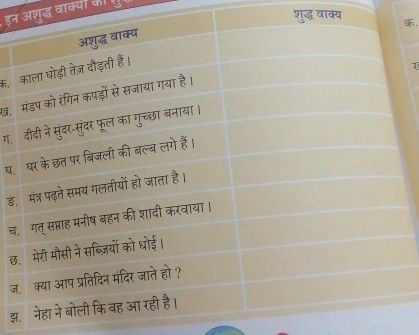 इन अशुद्ध वाक्यों को
अशुद्ध वाक्य
शुद्ध वाक्य
क.
क. काला घोड़ी तेज दौड़ती हैं।
ख. मंडप को रंगिन कपड़ों से सजाया गया है।
ग. दीदी ने सुंदर-सुंदर फूल का गुच्छा बनाया।
घ. घर के छत पर बिजली की बल्ब लगे हैं।
ङ. मंत्र पढ़ते समय गलतीयों हो जाता है।
च. गत् सप्ताह मनीष बहन की शादी करवाया।
छ. मेरी मौसी ने सब्जियों को धोई।
ज. क्या आप प्रतिदिन मंदिर जाते हो ?
झ. नेहा ने बोली कि वह आ रही है।